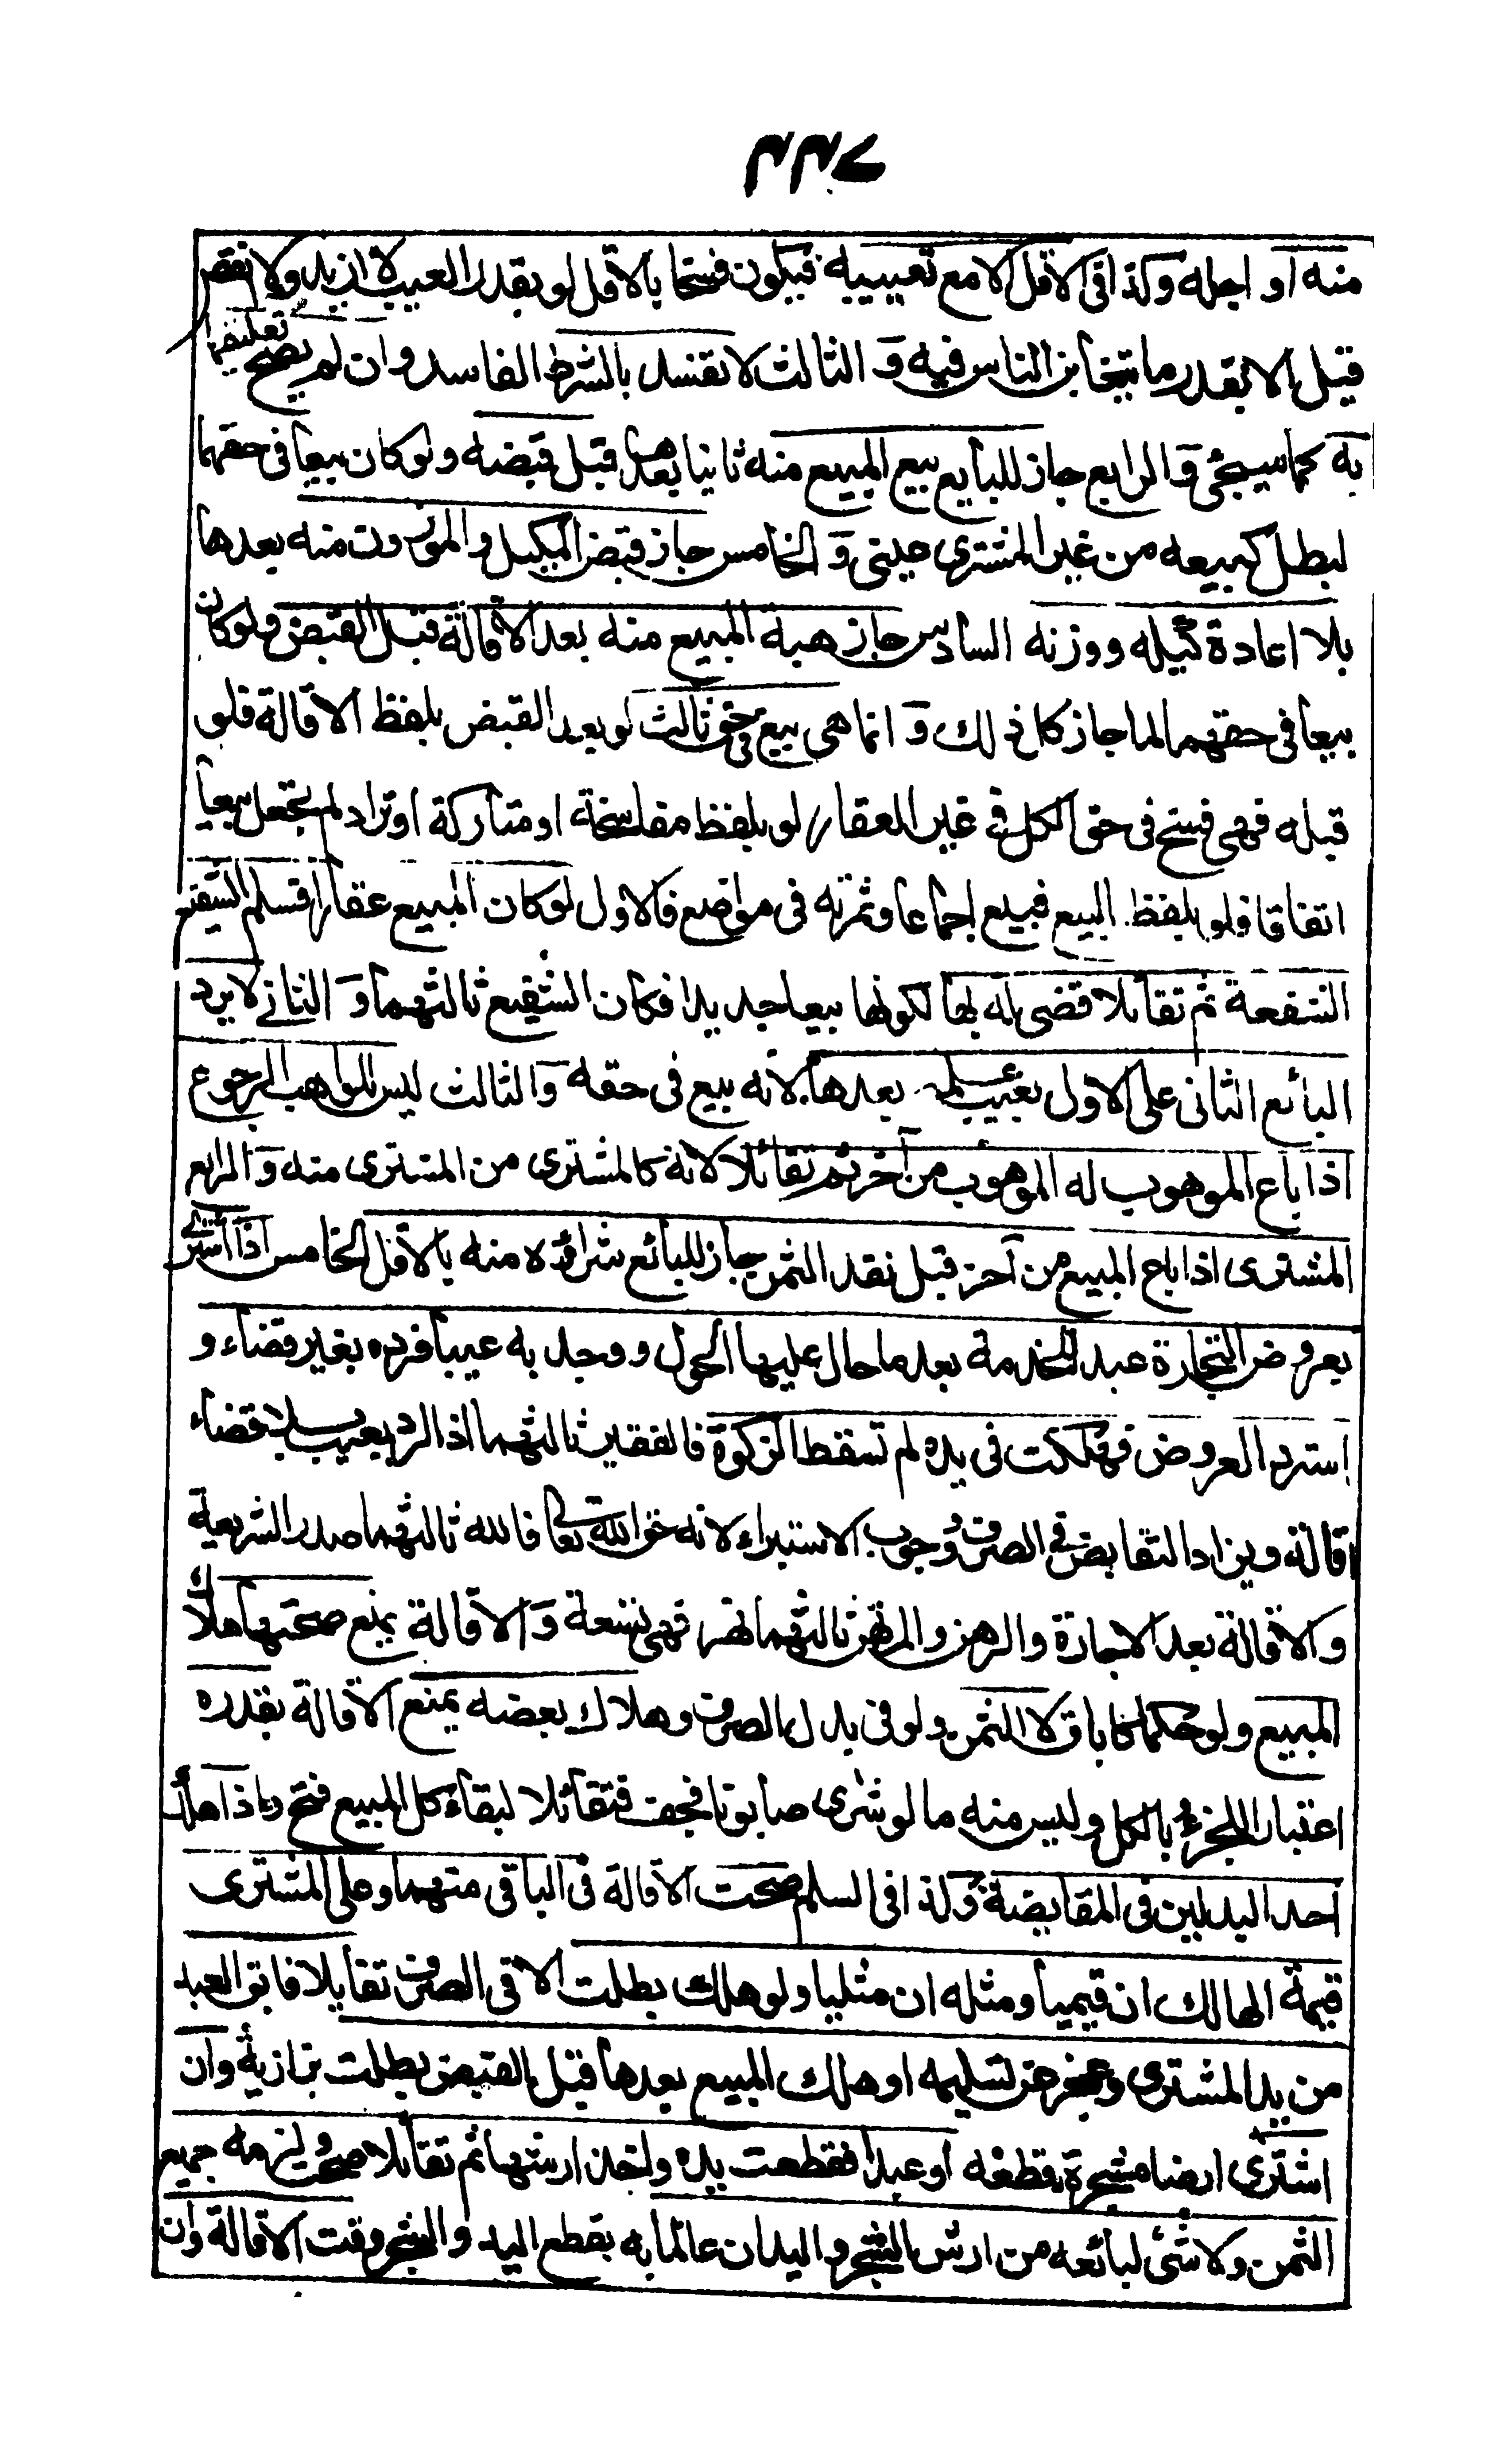 ٣٣٧
منه او اجله وكذا فى الاقل الا مع تعييبه فيكون فسخا بالاقل لو بقدر العيب لا ازيد ولا انقص
قيل الا بقدر ما يتغابن الناس فيه و الثالث لا تفسد بالشرط الفاسد وان لم يصح تعليقها
به كما سيجئ و الرابع جاز للبايع بيع المبيع منه ثانيا بعدها قبل قبضه ولو كان بيعا فى حقهما
لبطل كبيعه من غير المشترى عينى و الخامس جاز قبض المكيل والموزون منه بعدها
بلا اعادة كيله ووزنه السادس جاز هبة المبيع منه بعد الاقالة قبل القبض ولو كان
بيعا فى حقهما لما جاز كل ذلك و انما هى بيع فى حق ثالث لو بعد القبض بلفظ الاقالة فلو
قبله فهى فسخ فى حق الكل فى غير العقار لو بلفظ مفاسخة او متاركة او تراد لم تجعل بيعا
اتفاقا فلو بلفظ البيع فبيع اجماعا وثمرته فى مواضع فالاول لو كان المبيع عقارا فسلم الشفيع
الشفعة ثم تقائلا قضى له بها لكونها بيعا جديدا فكان الشفيع ثالثهما و الثانى لا يرد
البائع الثانى على الاول بعيب علمه بعدها لانه بيع فى حقه والثالث ليس للواهب الرجوع
اذا باع الموهوب له الموهوب من آخر ثم تقائلا لانه كالمشترى من المشترى منه و الرابع
المشترى اذا باع المبيع من آخر قبل نقد الثمن جاز للبائع شراؤه منه بالاقل الخامس اذا اشترى
بعروض التجارة عبد للخدمة بعد ما حال عليها الحول ووجد به عيبا فرده بغير قضاء و
استرد العروض فهلكت فى يده لم تسقط الزكوة فالفقير ثالثهما اذ الرد بعيب بلا قضاء
اقالة ويزاد التقابض فى الصرف ووجوب الاستبراء لانه حق الله تعالى فالله ثالثهما صدر الشريعة
والاقالة بعد الاجارة والرهن والمرتهن ثالثهما نهر فهى تسعة و الاقالة يمنع صحتها هلاك
المبيع ولو حكما كاباق لا الثمن ولو فى بدل الصرف وهلاك بعضه يمنع الاقالة بقدره
اعتبارا للجزء بالكل وليس منه ما لو شرى صابونا فجف فتقائلا لبقاء كل المبيع فتح واذا هلك
احد البدلين فى المقايضة وكذا فى السلم صحت الاقالة فى الباقى منهما وعلى المشترى
قيمة الهالك ان قيميا ومثله ان مثليا ولو هلك بطلت الا فى الصرف تقايلا فابق العبد
من يد المشترى وعجز عن تسليمه او هلك المبيع بعدها قبل القبض بطلت بزازية وان
اشترى ارضا مشجرة فقطعه او عبدا فقطعت يده واخذ ارشها ثم تقائلا صحت ولزمه جميع
الثمن ولا شئ لبائعه من ارش الشجر واليد ان عالما به بقطع اليد والشجر وقت الاقالة وان